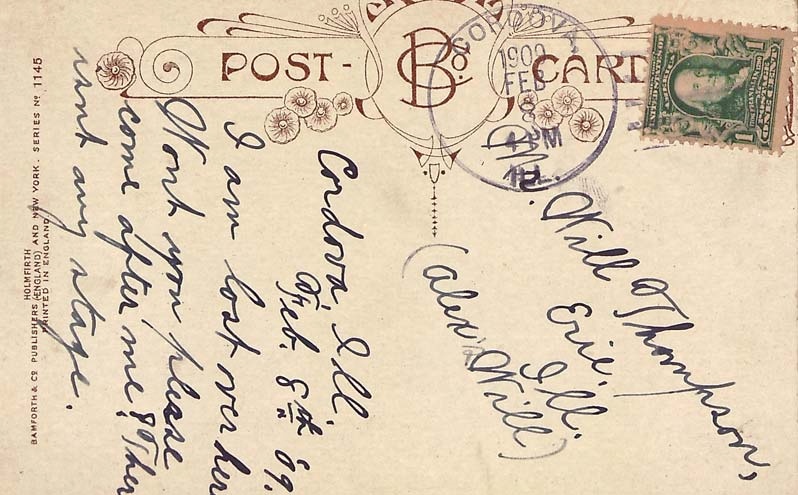 POST-CARD
B Co
CORDOVA,
1909
FEB
8
M
ILL
1 1
Cordova, Ill.
Feb. 8th 09.
I am lost over her
Wont you please
come after me? Ther
isnt any stage.
Mr. Will Thompson,
Erie.
Ill.
(alex Will)
BAMFORTH & Co PUBLISHERS HOLMFIRTH (ENGLAND) AND NEW YORK. SERIES No 1145
PRINTED IN ENGLAND